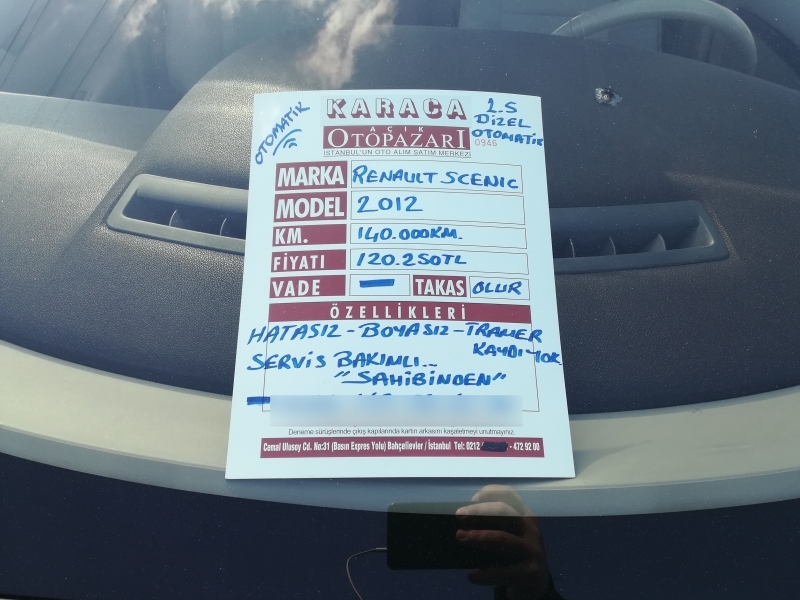 OTOMATİK
KARACA
AÇIK
OTOPAZARI
İSTANBUL'UN OTO ALIM SATIM MERKEZİ
1.5
DİZEL
OTOMATİK
0946
MARKA RENAULT SCENIC
MODEL 2012
KM. 140.000KM.
FİYATI 120.250TL
VADE — TAKAS OLUR
ÖZELLİKLERİ
HATASIZ - BOYASIZ - TRAMER
KAYDI YOK
SERVİS BAKIMLI..
"SAHİBİNDEN"
Deneme sürüşlerinde çıkış kapılarında kartın arkasını kaşeletmeyi unutmayınız.
Cemal Ulusoy Cd. No:31 (Basın Expres Yolu) Bahçelievler / İstanbul Tel: 0212 - 472 92 00